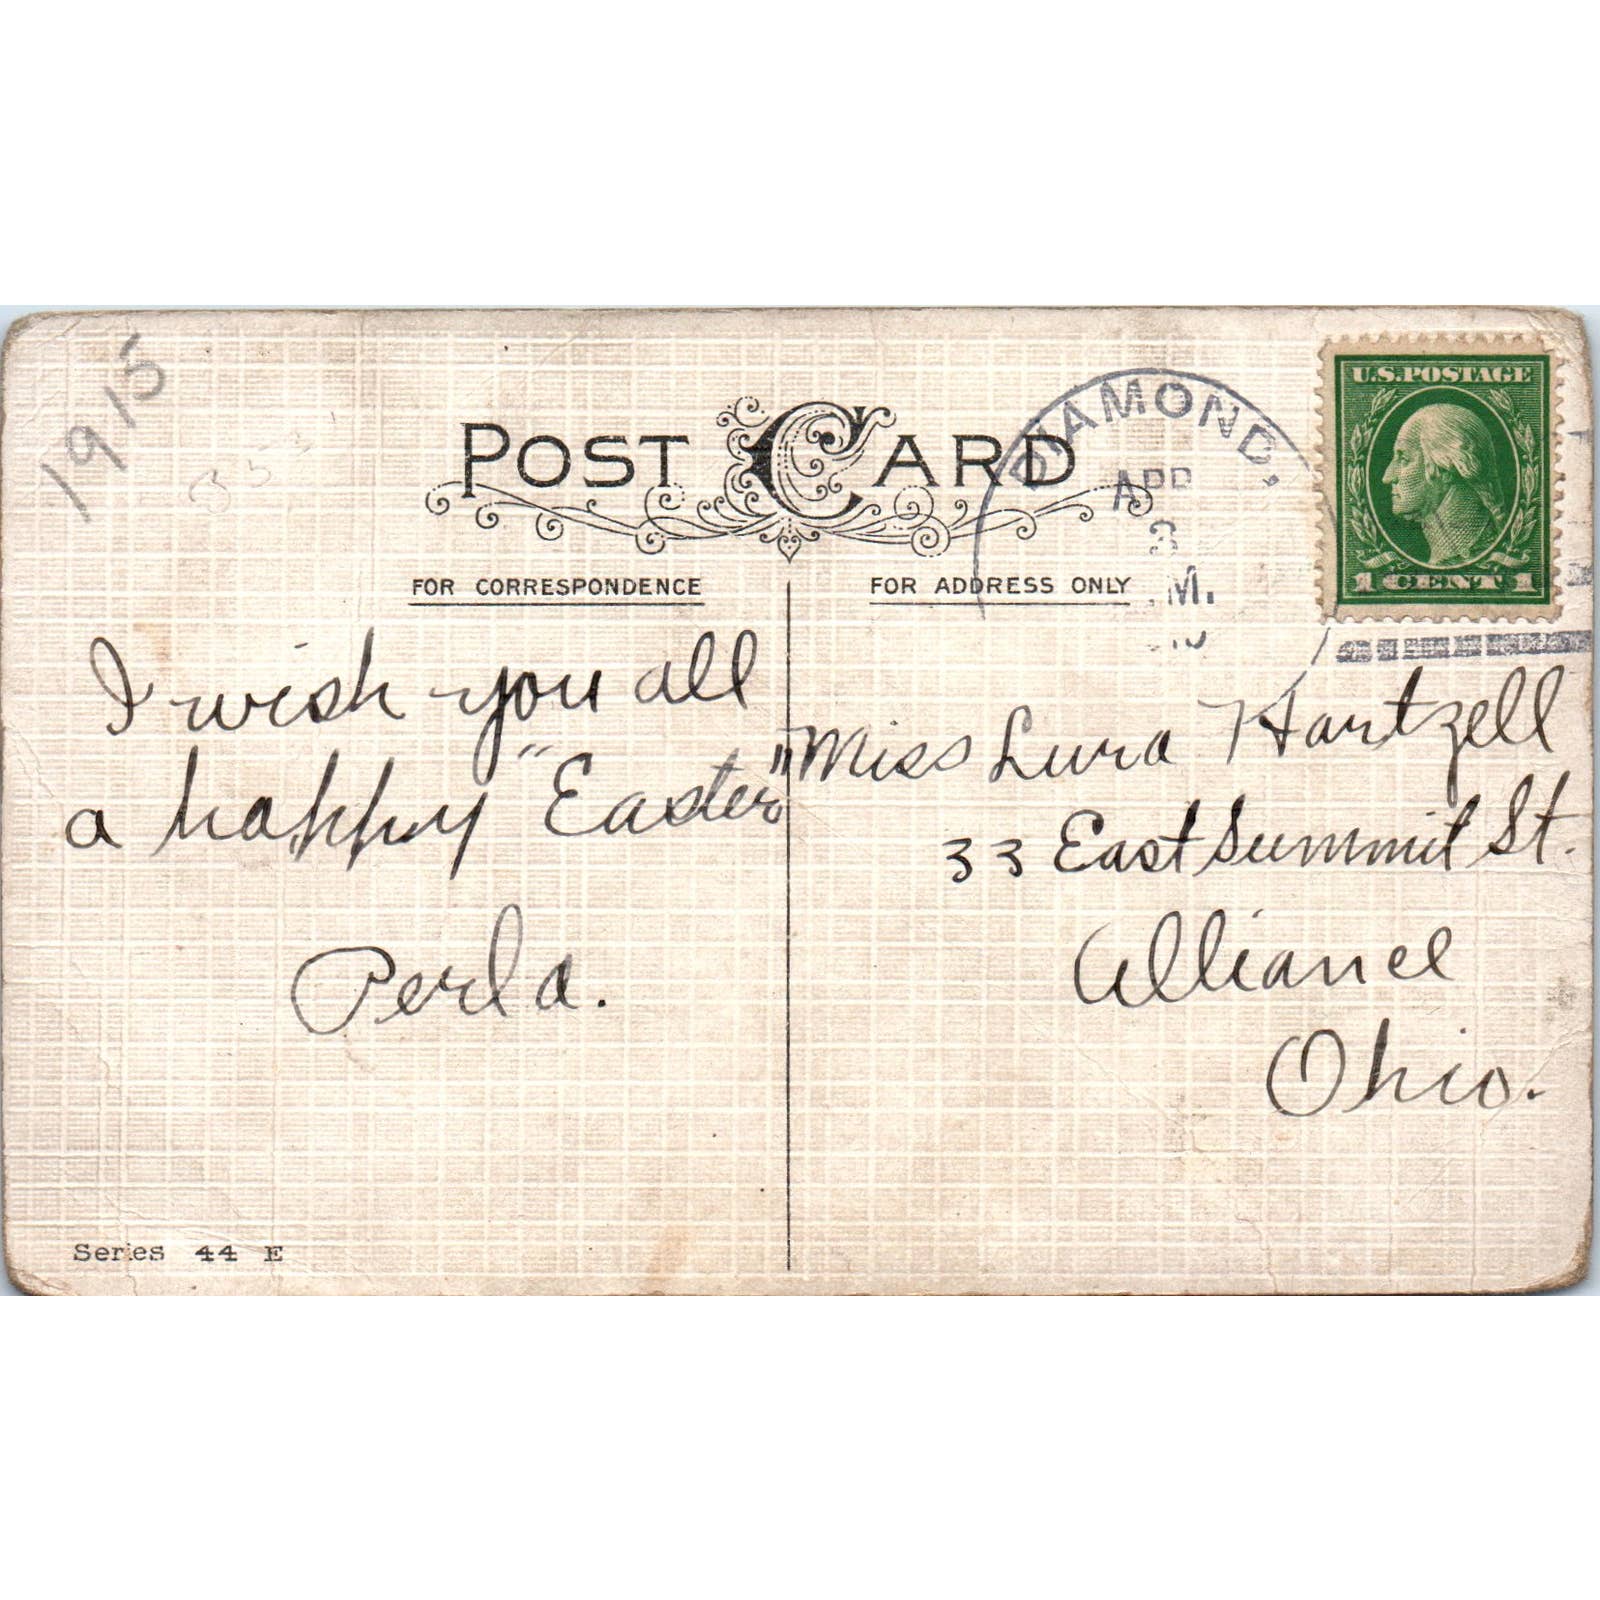 1915
POST CARD
DIAMOND,
APR
3
M.
U.S. POSTAGE
1 CENT 1
FOR CORRESPONDENCE
FOR ADDRESS ONLY
I wish you all
a happy "Easter"
Perla.
Miss Lura Hartzell
33 East Summit St.
Alliance
Ohio.
Series 44 E